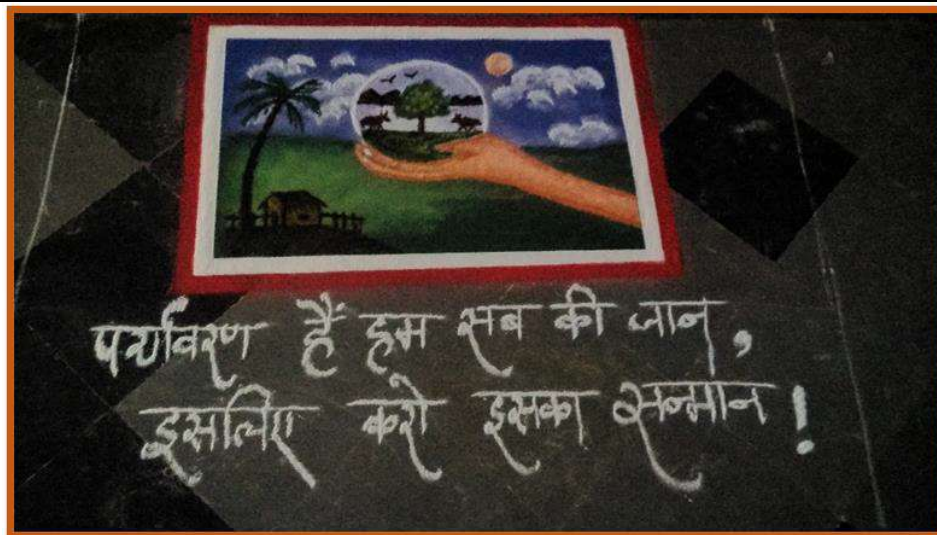 पर्यावरण हैं हम सब की जान,
इसलिए करो इसका सन्मान!